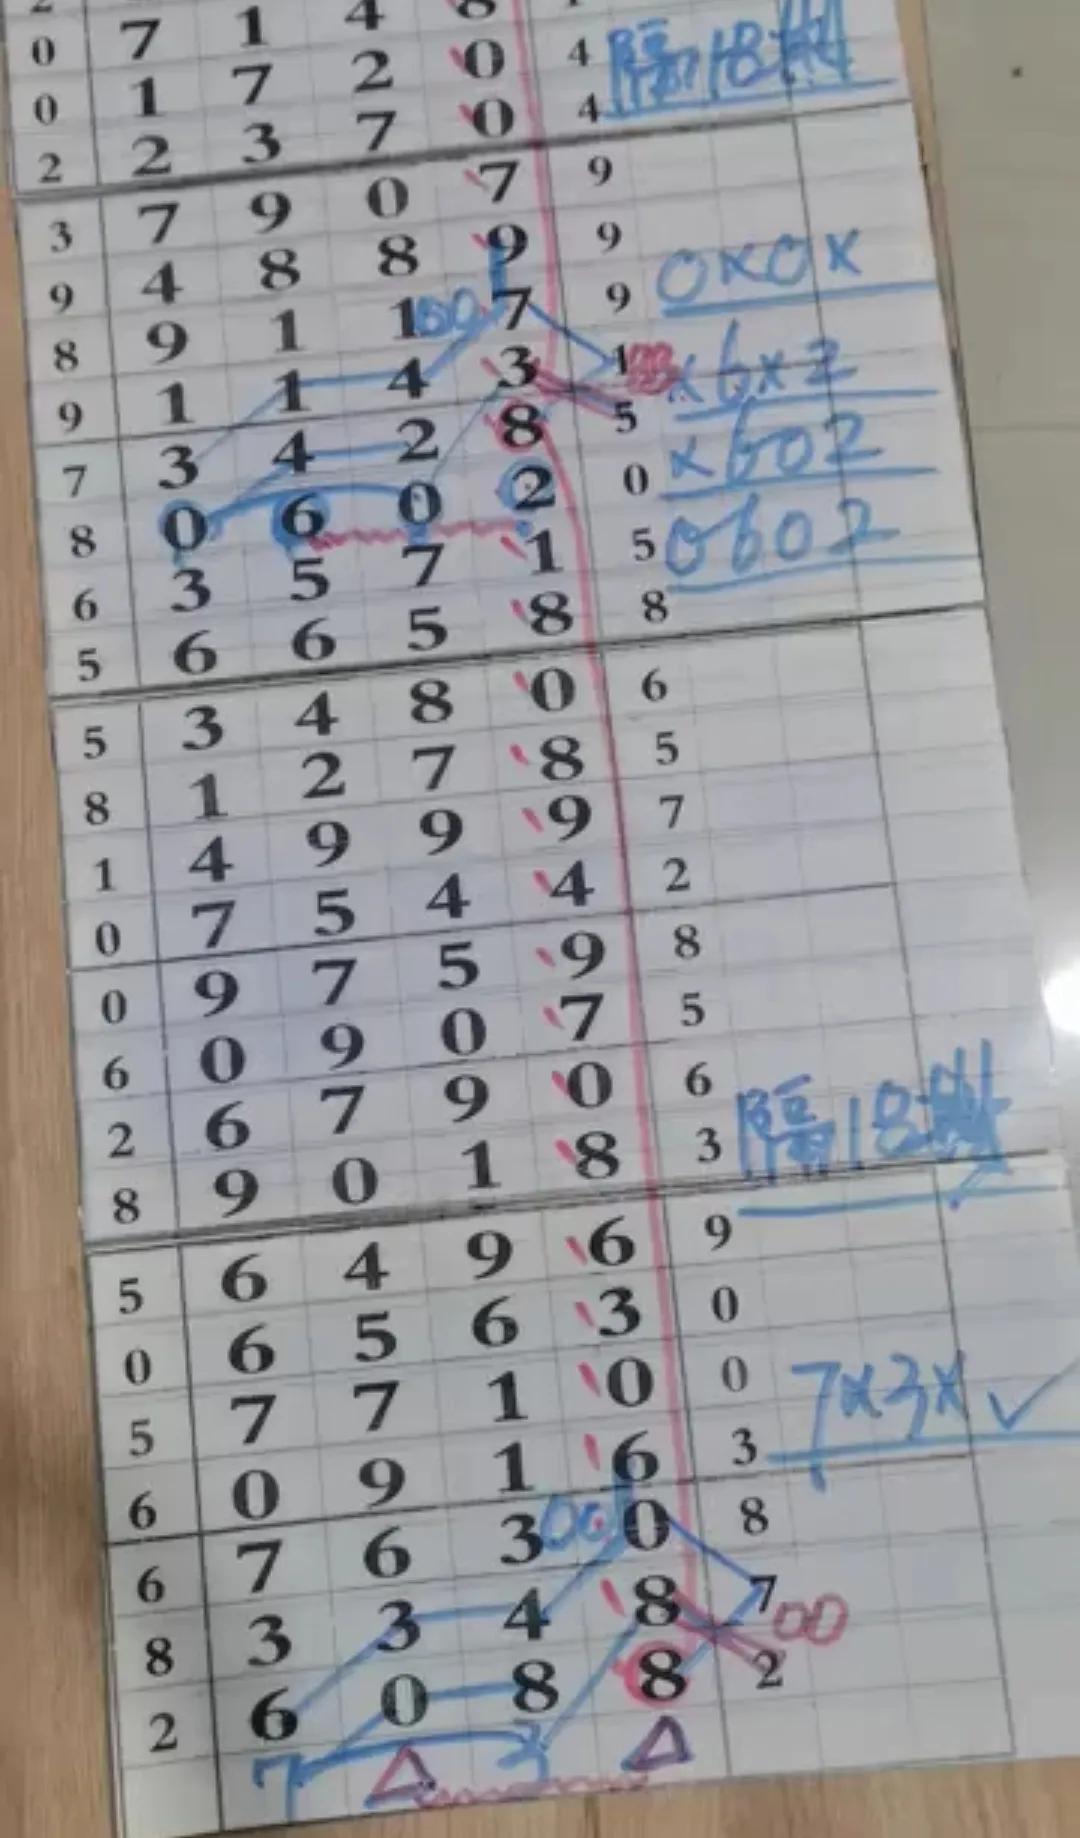 0 7 1 4 8
0 1 7 2 0 4 隔18期
2 2 3 7 0 4
3 7 9 0 7 9
9 4 8 8 9 9 0×0×
8 9 1 1 00 7 9
9 1 1 4 3 1 ×6×2
7 3 4 2 8 5 ×602
8 0 6 0 2 0 0602
6 3 5 7 1 5
5 6 6 5 8 8
5 3 4 8 0 6
8 1 2 7 8 5
1 4 9 9 9 7
0 7 5 4 4 2
0 9 7 5 9 8
6 0 9 0 7 5
2 6 7 9 0 6
8 9 0 1 8 3 隔18期
5 6 4 9 6 9
0 6 5 6 3 0
5 7 7 1 0 0 7×3× ✓
6 0 9 1 6 3
6 7 6 3 00 0 8
8 3 3 4 8 7 00
2 6 0 8 8 2
7 △ 3 △